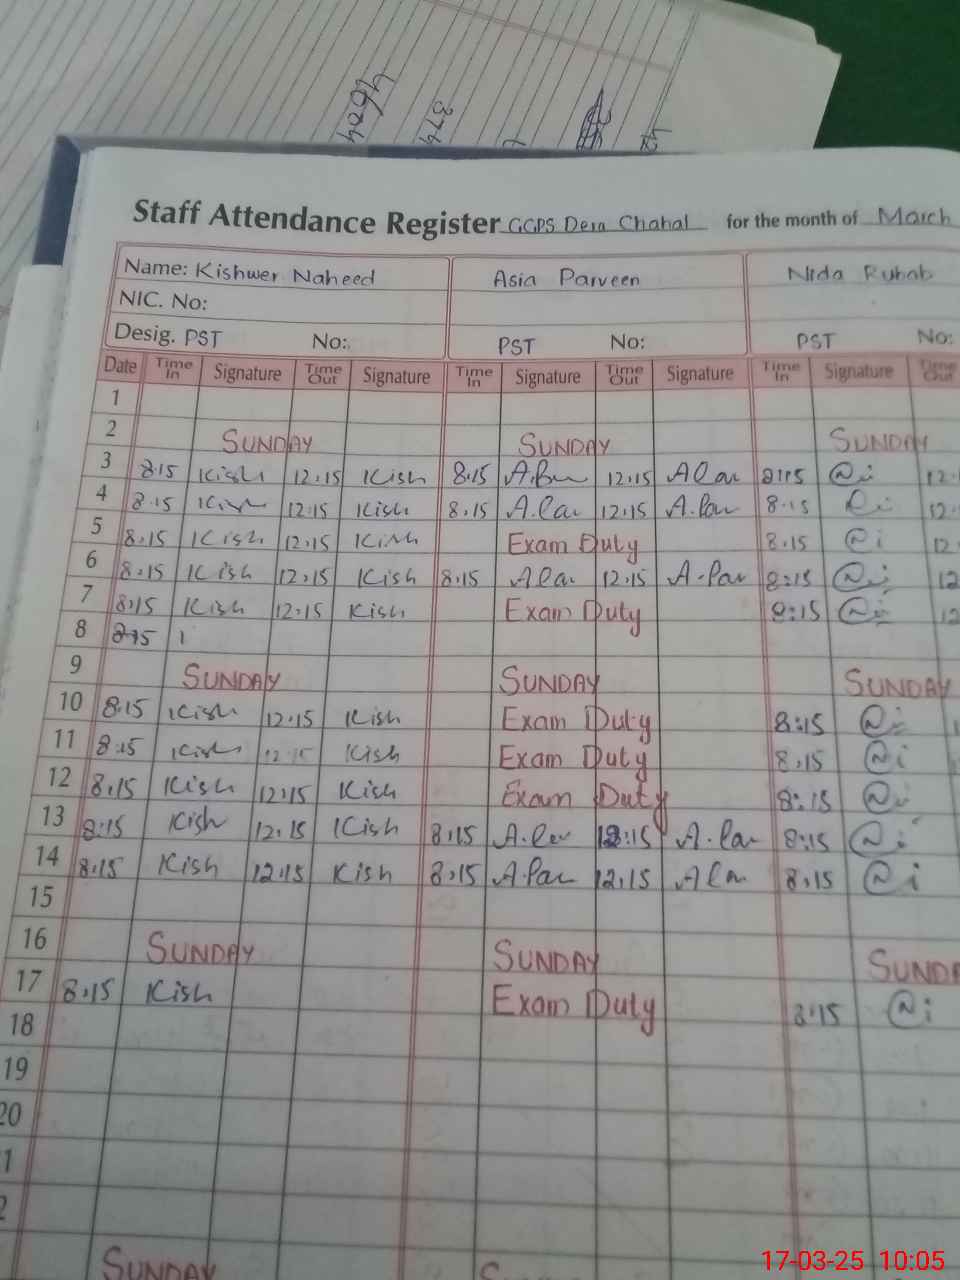 4604
374
Staff Attendance Register GGPS Dera Chahal for the month of March
Name: Kishwer Naheed Asia Parveen Nida Rubab
NIC. No:
Desig. PST No: PST No: PST No:
Date Time In Signature Time Out Signature Time In Signature Time Out Signature Time In Signature Time Out
1
2 SUNDAY SUNDAY SUNDAY
3 8:15 Kish 12:15 Kish 8:15 12:15 8:15 12
4 8:15 Kish 12:15 Kish 8:15 12:15 A.Par 8:15 12
5 8:15 Kish 12:15 Kish Exam Duty 8:15 12
6 8:15 Kish 12:15 Kish 8:15 12:15 A.Par 8:15 12
7 8:15 Kish 12:15 Kish Exam Duty 8:15 12
8 8:15
9 SUNDAY SUNDAY SUNDAY
10 8:15 Kish 12:15 Kish Exam Duty 8:15
11 8:15 Kish 12:15 Kish Exam Duty 8:15
12 8:15 Kish 12:15 Kish Exam Duty 8:15
13 8:15 Kish 12:15 Kish 8:15 12:15 8:15
14 8:15 Kish 12:15 Kish 8:15 A.Par 12:15 8:15
15
16 SUNDAY SUNDAY SUNDA
17 8:15 Kish Exam Duty 8:15
18
19
20
1
2
SUNDAY S
17-03-25 10:05